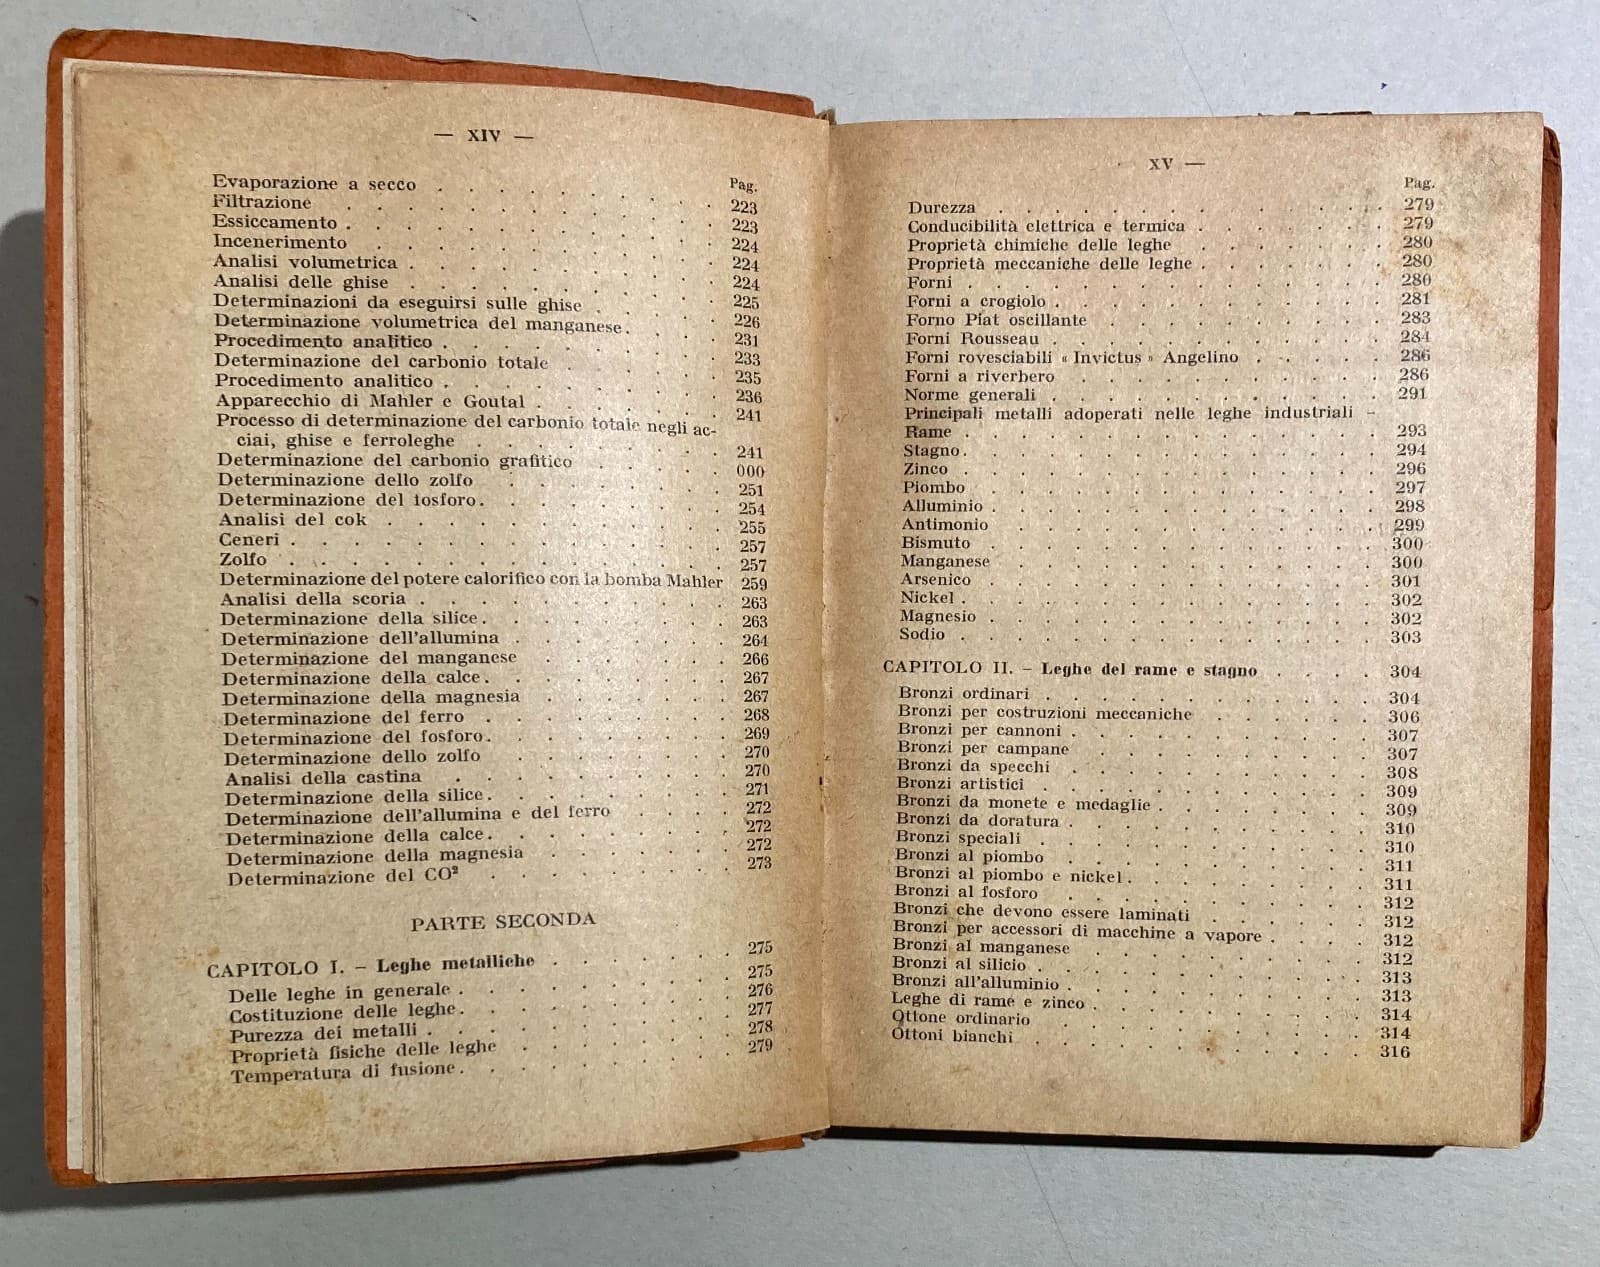 — XIV —
Pag.
Evaporazione a secco . . . . . . . . . . 223
Filtrazione . . . . . . . . . . 223
Essiccamento . . . . . . . . . . 224
Incenerimento . . . . . . . . . . 224
Analisi volumetrica . . . . . . . . . . 224
Analisi delle ghise . . . . . . . . . . 225
Determinazioni da eseguirsi sulle ghise . . . . 226
Determinazione volumetrica del manganese . . . . 231
Procedimento analitico . . . . . . . . . . 233
Determinazione del carbonio totale . . . . . . 235
Procedimento analitico . . . . . . . . . . 236
Apparecchio di Mahler e Goutal . . . . . . . 241
Processo di determinazione del carbonio totale negli ac-
ciai, ghise e ferroleghe . . . . . . . . 241
Determinazione del carbonio grafitico . . . . . 000
Determinazione dello zolfo . . . . . . . . 251
Determinazione del fosforo . . . . . . . . 254
Analisi del cok . . . . . . . . . . 255
Ceneri . . . . . . . . . . . . 257
Zolfo . . . . . . . . . . . . 257
Determinazione del potere calorifico con la bomba Mahler 259
Analisi della scoria . . . . . . . . . . 263
Determinazione della silice . . . . . . . . 263
Determinazione dell'allumina . . . . . . . 264
Determinazione del manganese . . . . . . . 266
Determinazione della calce . . . . . . . . 267
Determinazione della magnesia . . . . . . . 267
Determinazione del ferro . . . . . . . . 268
Determinazione del fosforo . . . . . . . . 269
Determinazione dello zolfo . . . . . . . . 270
Analisi della castina . . . . . . . . . 270
Determinazione della silice . . . . . . . . 271
Determinazione dell'allumina e del ferro . . . . 272
Determinazione della calce . . . . . . . . 272
Determinazione della magnesia . . . . . . . 272
Determinazione del CO² . . . . . . . . 273
PARTE SECONDA
CAPITOLO I. – Leghe metalliche . . . . . . 275
Delle leghe in generale . . . . . . . . . 275
Costituzione delle leghe . . . . . . . . . 276
Purezza dei metalli . . . . . . . . . . 277
Proprietà fisiche delle leghe . . . . . . . 278
Temperatura di fusione . . . . . . . . . 279
XV —
Pag.
Durezza . . . . . . . . . . . . 279
Conducibilità elettrica e termica . . . . . . . 279
Proprietà chimiche delle leghe . . . . . . . 280
Proprietà meccaniche delle leghe . . . . . . . 280
Forni . . . . . . . . . . . . . 280
Forni a crogiolo . . . . . . . . . . . 281
Forno Piat oscillante . . . . . . . . . . 283
Forni Rousseau . . . . . . . . . . . 284
Forni rovesciabili « Invictus » Angelino . . . . . 286
Forni a riverbero . . . . . . . . . . . 286
Norme generali . . . . . . . . . . . 291
Principali metalli adoperati nelle leghe industriali –
Rame . . . . . . . . . . . . . 293
Stagno . . . . . . . . . . . . . 294
Zinco . . . . . . . . . . . . . 296
Piombo . . . . . . . . . . . . . 297
Alluminio . . . . . . . . . . . . 298
Antimonio . . . . . . . . . . . . 299
Bismuto . . . . . . . . . . . . 300
Manganese . . . . . . . . . . . . 300
Arsenico . . . . . . . . . . . . 301
Nickel . . . . . . . . . . . . . 302
Magnesio . . . . . . . . . . . . 302
Sodio . . . . . . . . . . . . . 303
CAPITOLO II. – Leghe del rame e stagno . . . . 304
Bronzi ordinari . . . . . . . . . . . 304
Bronzi per costruzioni meccaniche . . . . . . 306
Bronzi per cannoni . . . . . . . . . . 307
Bronzi per campane . . . . . . . . . . 307
Bronzi da specchi . . . . . . . . . . 308
Bronzi artistici . . . . . . . . . . . 309
Bronzi da monete e medaglie . . . . . . . . 309
Bronzi da doratura . . . . . . . . . . 310
Bronzi speciali . . . . . . . . . . . 310
Bronzi al piombo . . . . . . . . . . 311
Bronzi al piombo e nickel . . . . . . . . 311
Bronzi al fosforo . . . . . . . . . . 312
Bronzi che devono essere laminati . . . . . . 312
Bronzi per accessori di macchine a vapore . . . . 312
Bronzi al manganese . . . . . . . . . . 312
Bronzi al silicio . . . . . . . . . . . 313
Bronzi all'alluminio . . . . . . . . . . 313
Leghe di rame e zinco . . . . . . . . . 314
Ottone ordinario . . . . . . . . . . . 314
Ottoni bianchi . . . . . . . . . . . 316